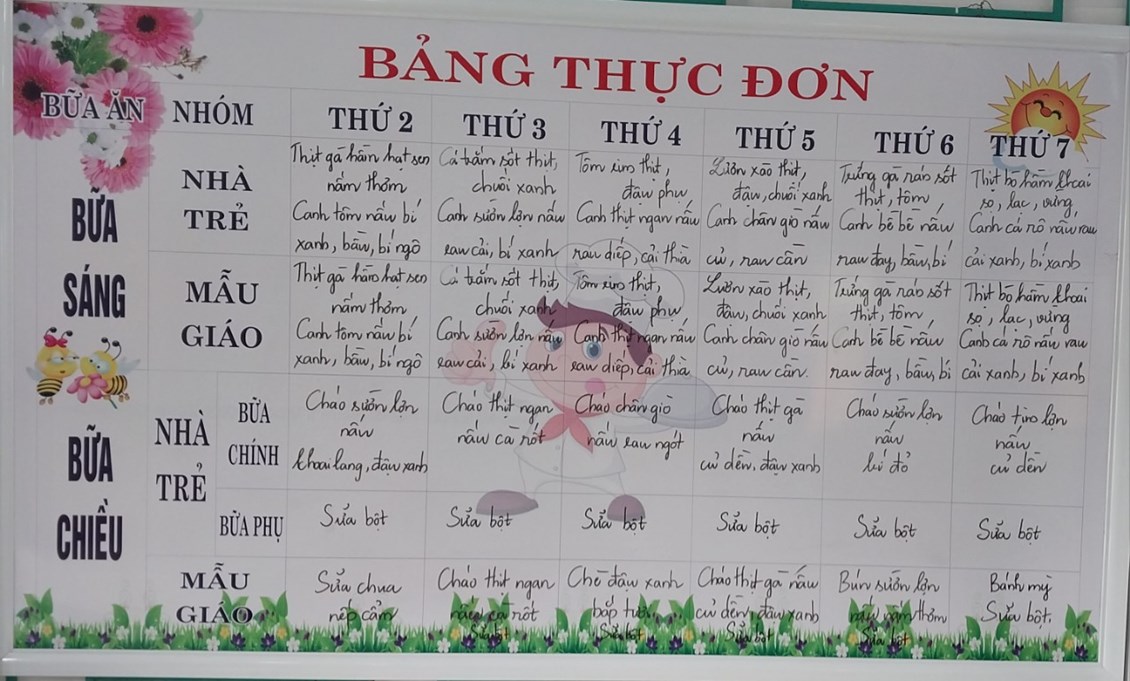 BẢNG THỰC ĐƠN
BỮA ĂN NHÓM THỨ 2 THỨ 3 THỨ 4 THỨ 5 THỨ 6 THỨ 7
BỮA
SÁNG
NHÀ
TRẺ
Thịt gà hầm hạt sen
nấm thơm
Canh tôm nấu bí
xanh, bầu, bí ngô
Cá trắm sốt thịt,
chuối xanh
Canh sườn lợn nấu
rau cải, bí xanh
Tôm rim thịt,
đậu phụ
Canh thịt ngan nấu
rau diếp, cải thìa
Lươn xào thịt,
đậu, chuối xanh
Canh chân giò nấu
củ, rau cần
Trứng gà rán sốt
thịt, tôm
Canh bề bề nấu
rau đay, bầu, bí
Thịt bò hầm khoai
sọ, lạc, vừng
Canh cá rô nấu rau
cải xanh, bí xanh
MẪU
GIÁO
Thịt gà hầm hạt sen
nấm thơm
Canh tôm nấu bí
xanh, bầu, bí ngô
Cá trắm sốt thịt,
chuối xanh
Canh sườn lợn nấu
rau cải, bí xanh
Tôm rim thịt,
đậu phụ
Canh thịt ngan nấu
rau diếp, cải thìa
Lươn xào thịt,
đậu, chuối xanh
Canh chân giò nấu
củ, rau cần.
Trứng gà rán sốt
thịt, tôm
Canh bề bề nấu
rau đay, bầu, bí
Thịt bò hầm khoai
sọ, lạc, vừng
Canh cá rô nấu rau
cải xanh, bí xanh
BỮA
CHIỀU
NHÀ
TRẺ
BỮA
CHÍNH
Cháo sườn lợn
nấu
khoai lang, đậu xanh
Cháo thịt ngan
nấu cà rốt
Cháo chân giò
nấu rau ngót
Cháo thịt gà
nấu
củ dền, đậu xanh
Cháo sườn lợn
nấu
bí đỏ
Cháo tim lợn
nấu
củ dền
BỮA PHỤ
Sữa bột
Sữa bột
Sữa bột
Sữa bột
Sữa bột
Sữa bột
MẪU
GIÁO
Sữa chua
nếp cẩm
Cháo thịt ngan
nấu cà rốt
Sữa bột
Chè đậu xanh
bắp tươi
Sữa bột
Cháo thịt gà nấu
củ dền, đậu xanh
Sữa bột
Bún sườn lợn
nấu nấm thơm
Sữa bột
Bánh mỳ
Sữa bột.